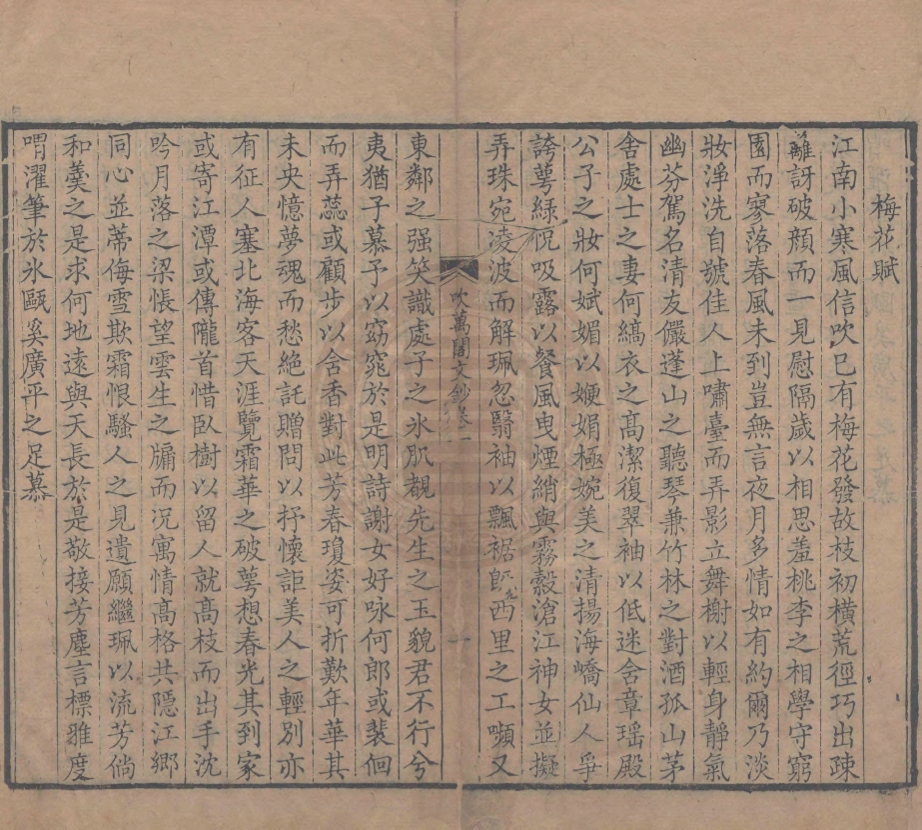 梅花賦
江南小寒風信吹已有梅花發故枝初橫荒徑巧出疎
離訝破顏而一見慰隔歲以相思羞桃李之相學守窮
園而寥落春風未到豈無言夜月多情如有約爾乃淡
妝淨洗自號佳人上嘯臺而弄影立舞榭以輕身靜氣
幽芬駕名清友儼蓬山之聽琴兼竹林之對酒孤山茅
舍處士之妻何縞衣之髙潔復翠袖以低迷舍章瑶殿
公子之妝何娬媚以㛹娟極婉美之清揚海嶠仙人爭
誇萼綠怳吸露以餐風曳煙綃與霧縠滄江神女並擬
弄珠宛淩波而解珮忽翳袖以飄裾旣西里之工嚬又
吹萬閣文鈔卷一
一
東鄰之强笑識處子之氷肌覩先生之玉貌君不行兮
夷猶子慕予以窈窕於是明詩謝女好咏何郎或裴佪
而弄蕊或顧步以舍香對此芳春瓊姿可折歎年華其
未央憶夢魂而愁絕託贈問以抒懷詎美人之輕別亦
有征人塞北海客天涯覽霜華之破萼想春光其到家
或寄江潭或傳隴首惜臥樹以留人就髙枝而出手沈
吟月落之梁悵望雲生之牖而况寓情髙格共隱江鄉
同心並蒂侮雪欺霜恨騷人之見遺願繼珮以流芳倘
和羹之是求何地遠與天長於是敬接芳塵言標雅度
喟濯筆於氷甌奚廣平之足慕